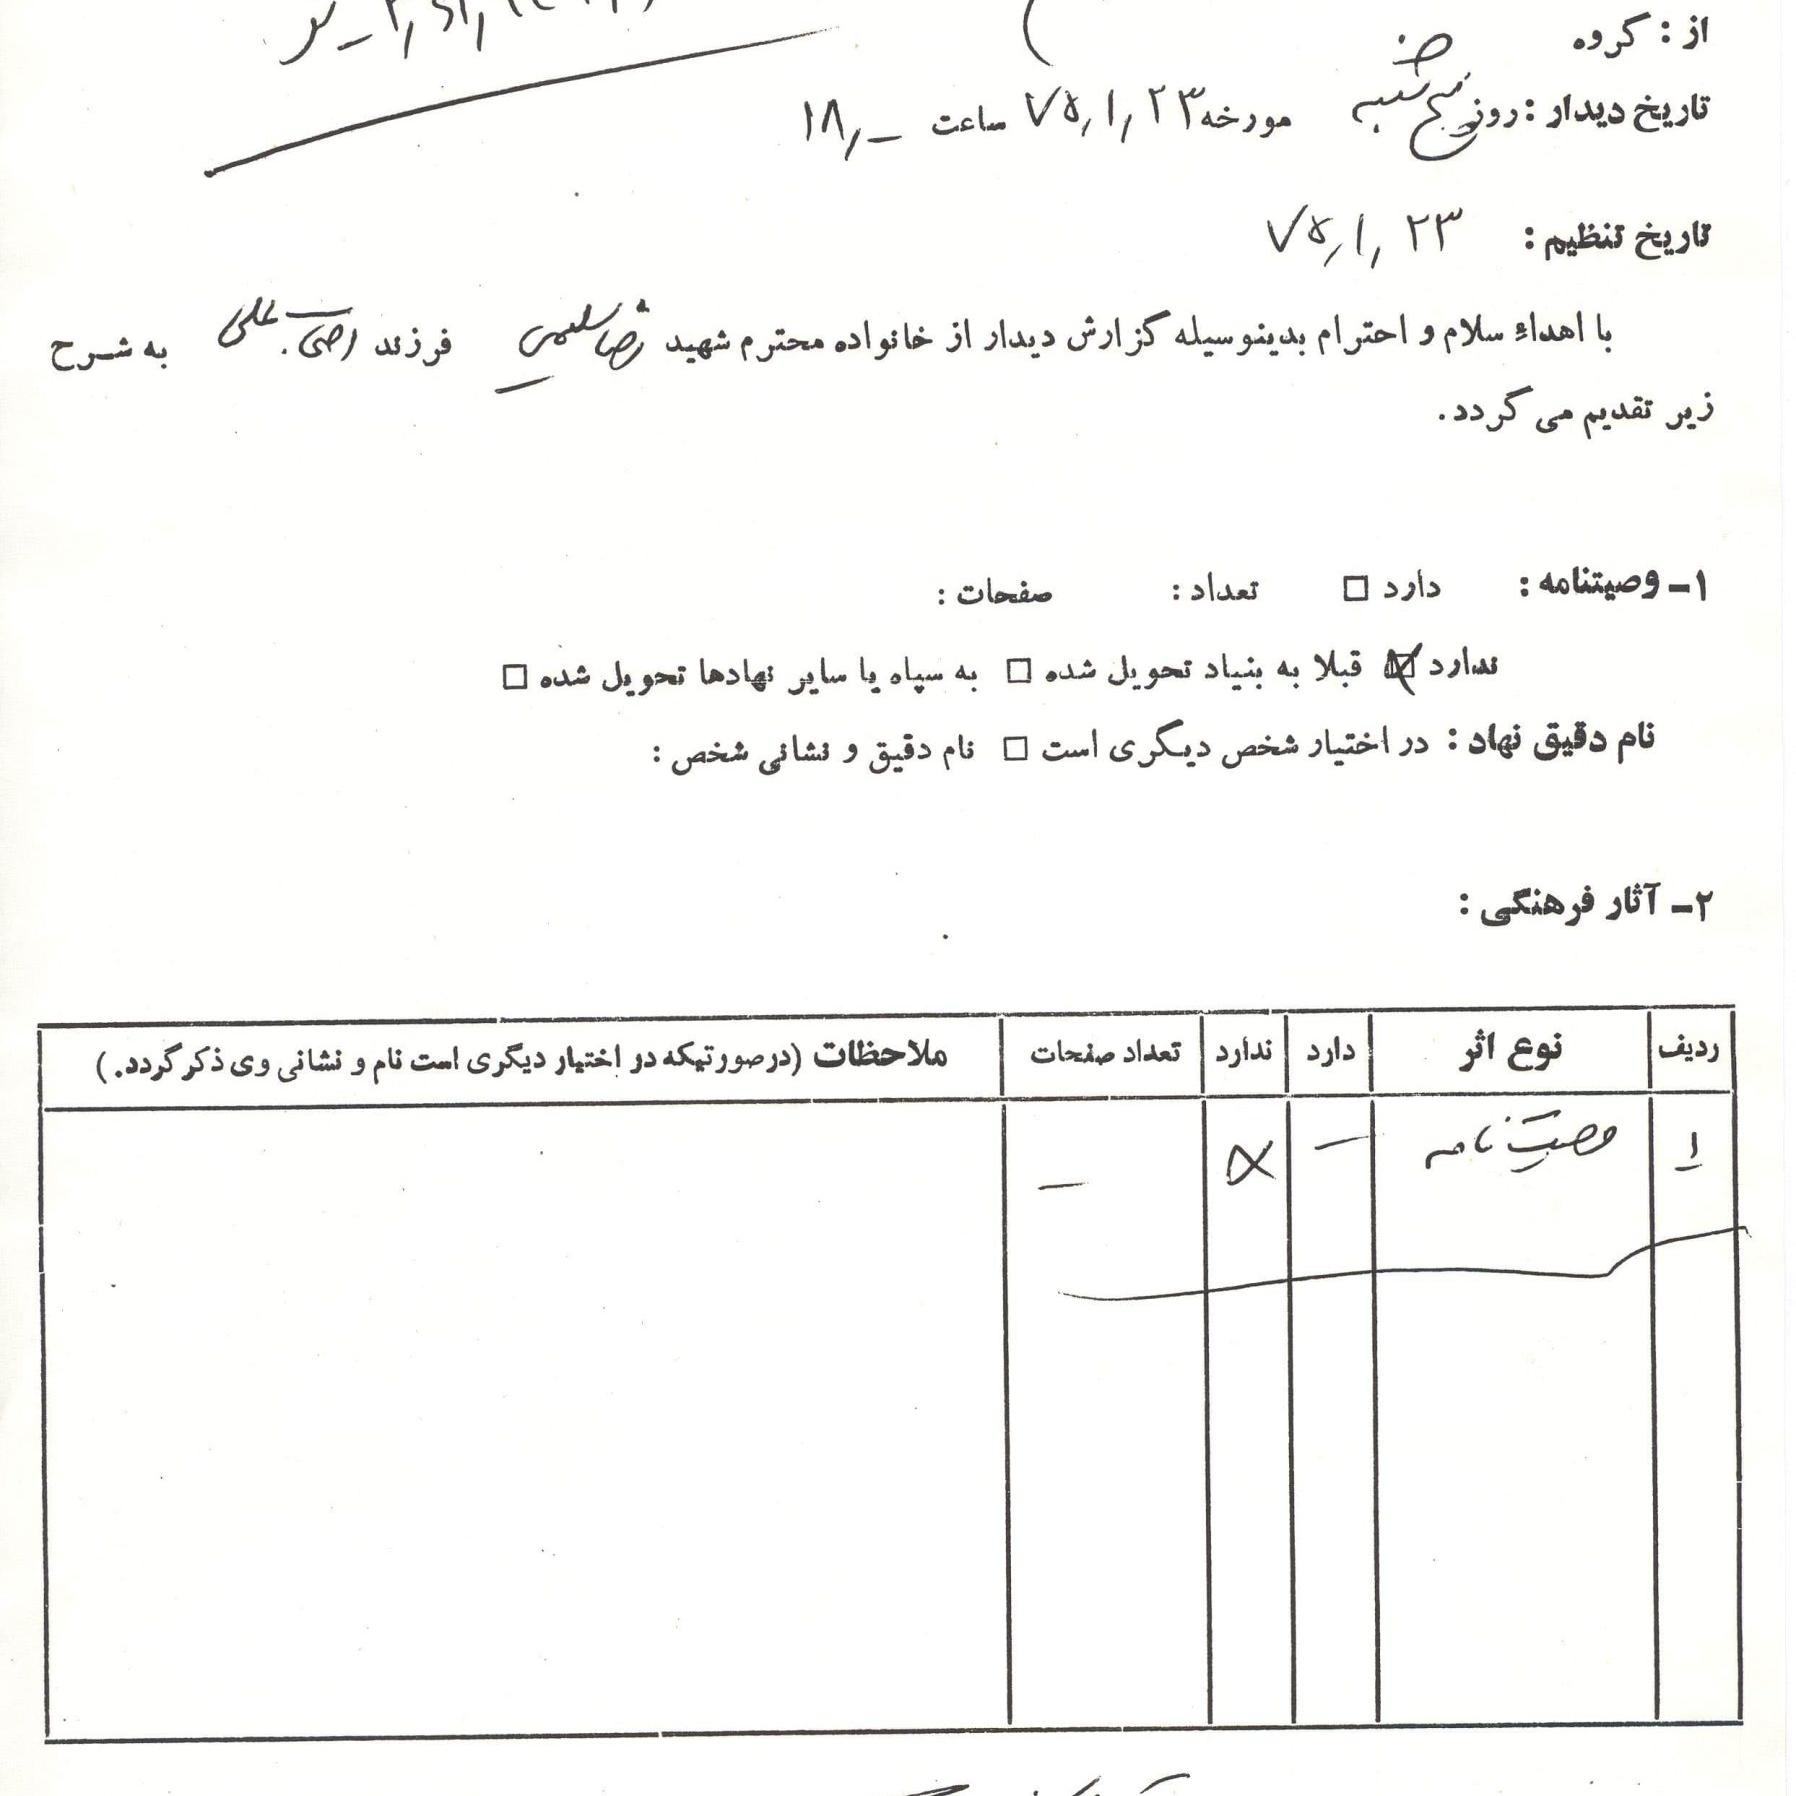 از : گروه ض
تاریخ دیدار : روز پنج شنبه مورخه ۷۵,۱,۲۳ ساعت ۱۸,ـ
تاریخ تنظیم : ۷۵,۱,۲۳
با اهداء سلام و احترام بدینوسیله گزارش دیدار از خانواده محترم شهید رضا سلیمی فرزند علی به شرح
زیر تقدیم می گردد.
۱ـ وصیتنامه : دارد □ تعداد : صفحات :
ندارد ☒ قبلا به بنیاد تحویل شده □ به سپاه یا سایر نهادها تحویل شده □
نام دقیق نهاد : در اختیار شخص دیگری است □ نام دقیق و نشانی شخص :
۲ـ آثار فرهنگی :
ردیف نوع اثر دارد ندارد تعداد صفحات ملاحظات (درصورتیکه در اختیار دیگری است نام و نشانی وی ذکر گردد.)
۱ وصیت نامه — × —